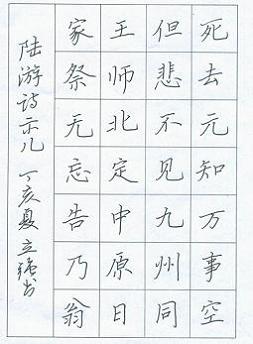 死去元知万事空
但悲不见九州同
王师北定中原日
家祭无忘告乃翁
陆游诗示儿 丁亥夏立强书